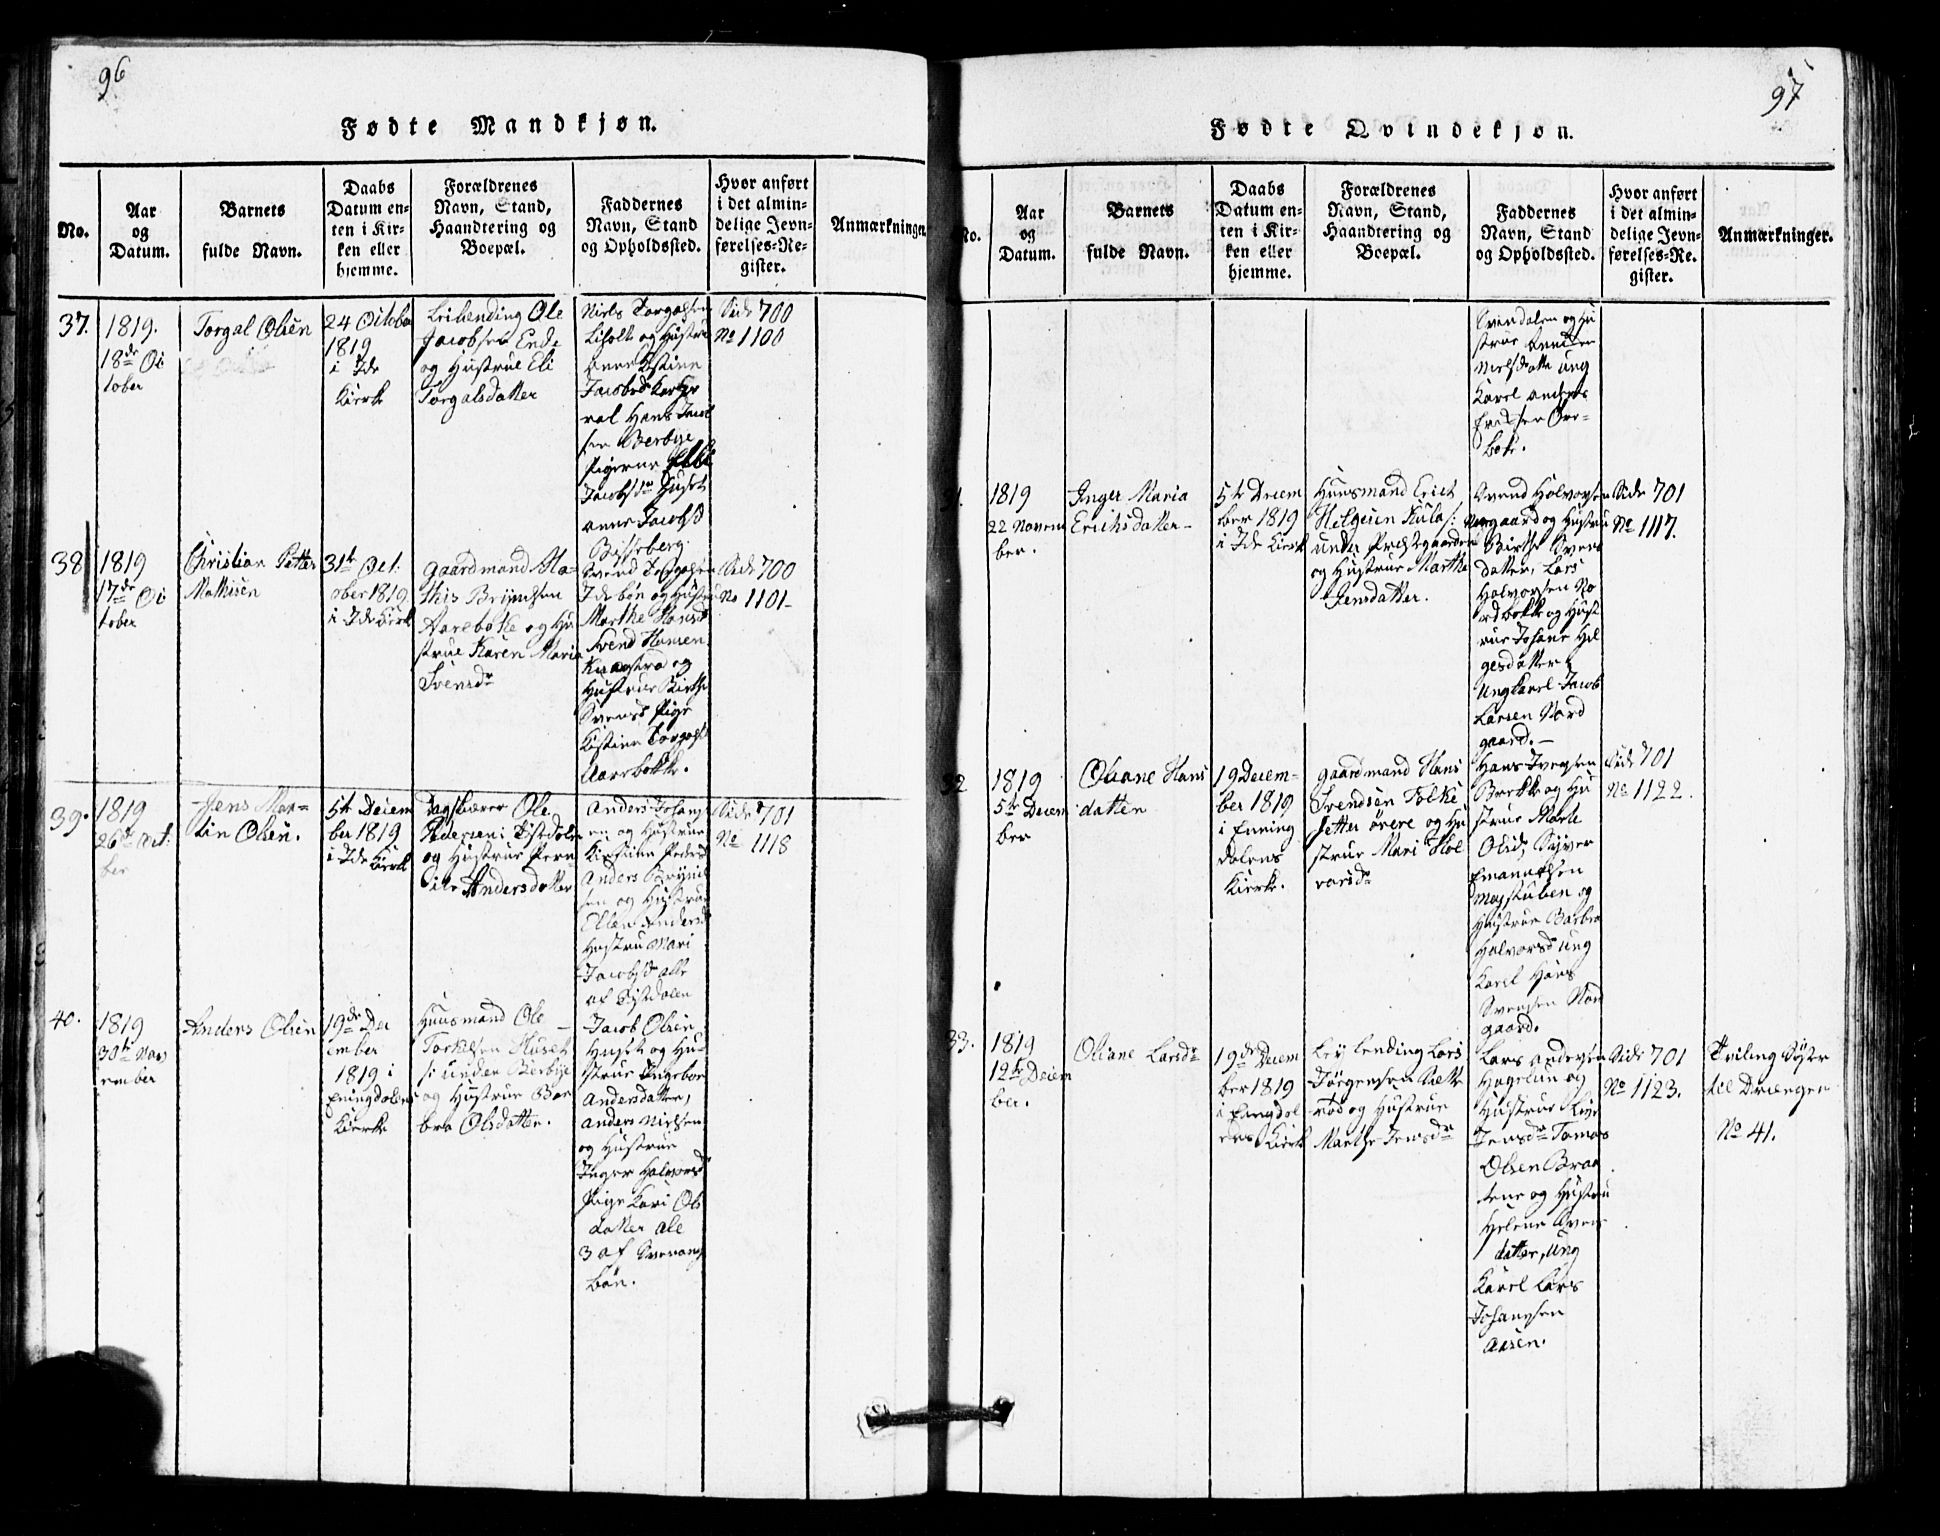 96
Fødte Mandkjøn.
No.
Aar
og
Datum.
Barnets
fulde Navn.
Daabs
Datum en-
ten i Kir-
ken eller
hjemme.
Forældrenes
Navn, Stand,
Haandtering og
Boepæl.
Faddernes
Navn, Stand
og Opholdssted.
Hvor anført
i det almin-
delige Jevn-
førelses-Re-
gister.
Anmærkninger.
37.
1819.
18de Oc
tober
Torgal Olsen
24 Octobe
1819
i Ide
Kierke
Leilending Ole
Jacobsen Ende
og Hustrue Eli
Torgalsdatter
Niels Torgalsen
Liholt og Hustru
Anne Kistine
Jacobsd
Hans Jacob
sen Berbye
Pigerne
Jacobsdr Huset
Anne Jacobsd
Bisseberg.
Side 700
No 1100
38
1819
17de Oc
tober
Christian Petter
Mathisen
31te Oct.
ober 1819
i Ide Kierk
Gaardmand Ma-
this Brynelsen
Aarebøke og Hu
strue Karen Maria
Svensdr
Svend Torgalsen
Idebøn og Hustru
Marthe Hansd
Svend Hansen
og
Hustrue Birthe
Svensd Pige
Kistine Torgalsd
Aarebøkke.
Side 700
No 1101-
39.
1819
26de Oct:
ber
Jens Mar=
tin Olsen.
5te Decem
ber 1819
i Ide Kierk
Ole
Pedersen i Tistedalen
og Hustrue Pern-
ile Andersdatter
Anders Johans
en og Hustrue
Kirstine Pedersd
Anders Brynil
sen og Hustrue
Ellen Andersd
Hustru Mari
Jacobsdr alle
af Tistedalen
Side 701
No 1118
40.
1819
30te Nov
ember
Anders Olsen
19de Dec
ember
1819 i
Eningdalens
Kierke
Huusmand Ole
Torkelsen Huset
/: under Berbye
og Hustrue Bar
bra Olsdatter.
Jacob Olsen
Huset og Hu-
strue Ingebor
Andersdatter,
Anders Nielsen
og Hustrue
Inger Halvorsd
Pige Kari Ols
datter ale
3 af
bøn.
97
Fødte Qvindekjøn.
No.
Aar
og
Datum.
Barnets
fulde Navn.
Daabs
Datum en-
ten i Kir-
ken eller
hjemme.
Forældrenes
Navn, Stand,
Haandtering og
Boepæl.
Faddernes
Navn, Stand
og Opholdssted.
Hvor anført
i det almin-
delige Jevn-
førelses-Re-
gister.
Anmærkninger.
Svendalen og Hu
strue
Nielsdatter ung
Karel Anders
Are-
bøke.
31.
1819
22 Novem
ber.
Inger Maria
Erichsdatter-
5te Decem
ber 1819
i Ide Kierk
Huusmand Erich
Helgesen Kulas:
under Prestegaarden
og Hustrue Marthe
Jensdatter.
Svend Halvorsen
Norgaard og Hustru
Birthe Svens
datter, Lars
Halvorsen No
rdbøkke og Hust
rue Johane Hel
gesdatter
Ungkarel Jacob
Larsen Nord
gaard.-
Side 701
No 1117.
32
1819
5te Decem
ber
Oliane Hans
datter
19 Decem-
ber 1819
i Enning
dalens
Kierke.
Gaardmand Hans
Svendsen Folke
setter øvere og Hu
strue Mari Hal
varsdr
Hans Iversen
Bøkke og Hu
strue Marte
Olsdr, Syver
Emanuelsen
Maystuben og
Hustrue Barbra
Halvorsdr ung
Karel Hans
Svensen Nord
gaard.
Side 701
No 1122.
33.
1819
12te Decem
ber.
Oliane Larsdr
19de Decem
ber 1819
i Enngdal
ens Kierk
Leylending Lars
Jørgensen
rød og Hustrue
Marthe Jensdr
Lars Andersen
Hagelun og
Hustrue Live
Jensdr Tomas
Olsen Braa
tene og Hustru
Helene Svens
datter, Ung
Karel Lars
Johansen
Aasen.
Side 701
No 1123.
Tviling Syster
til Drængen
No 41.